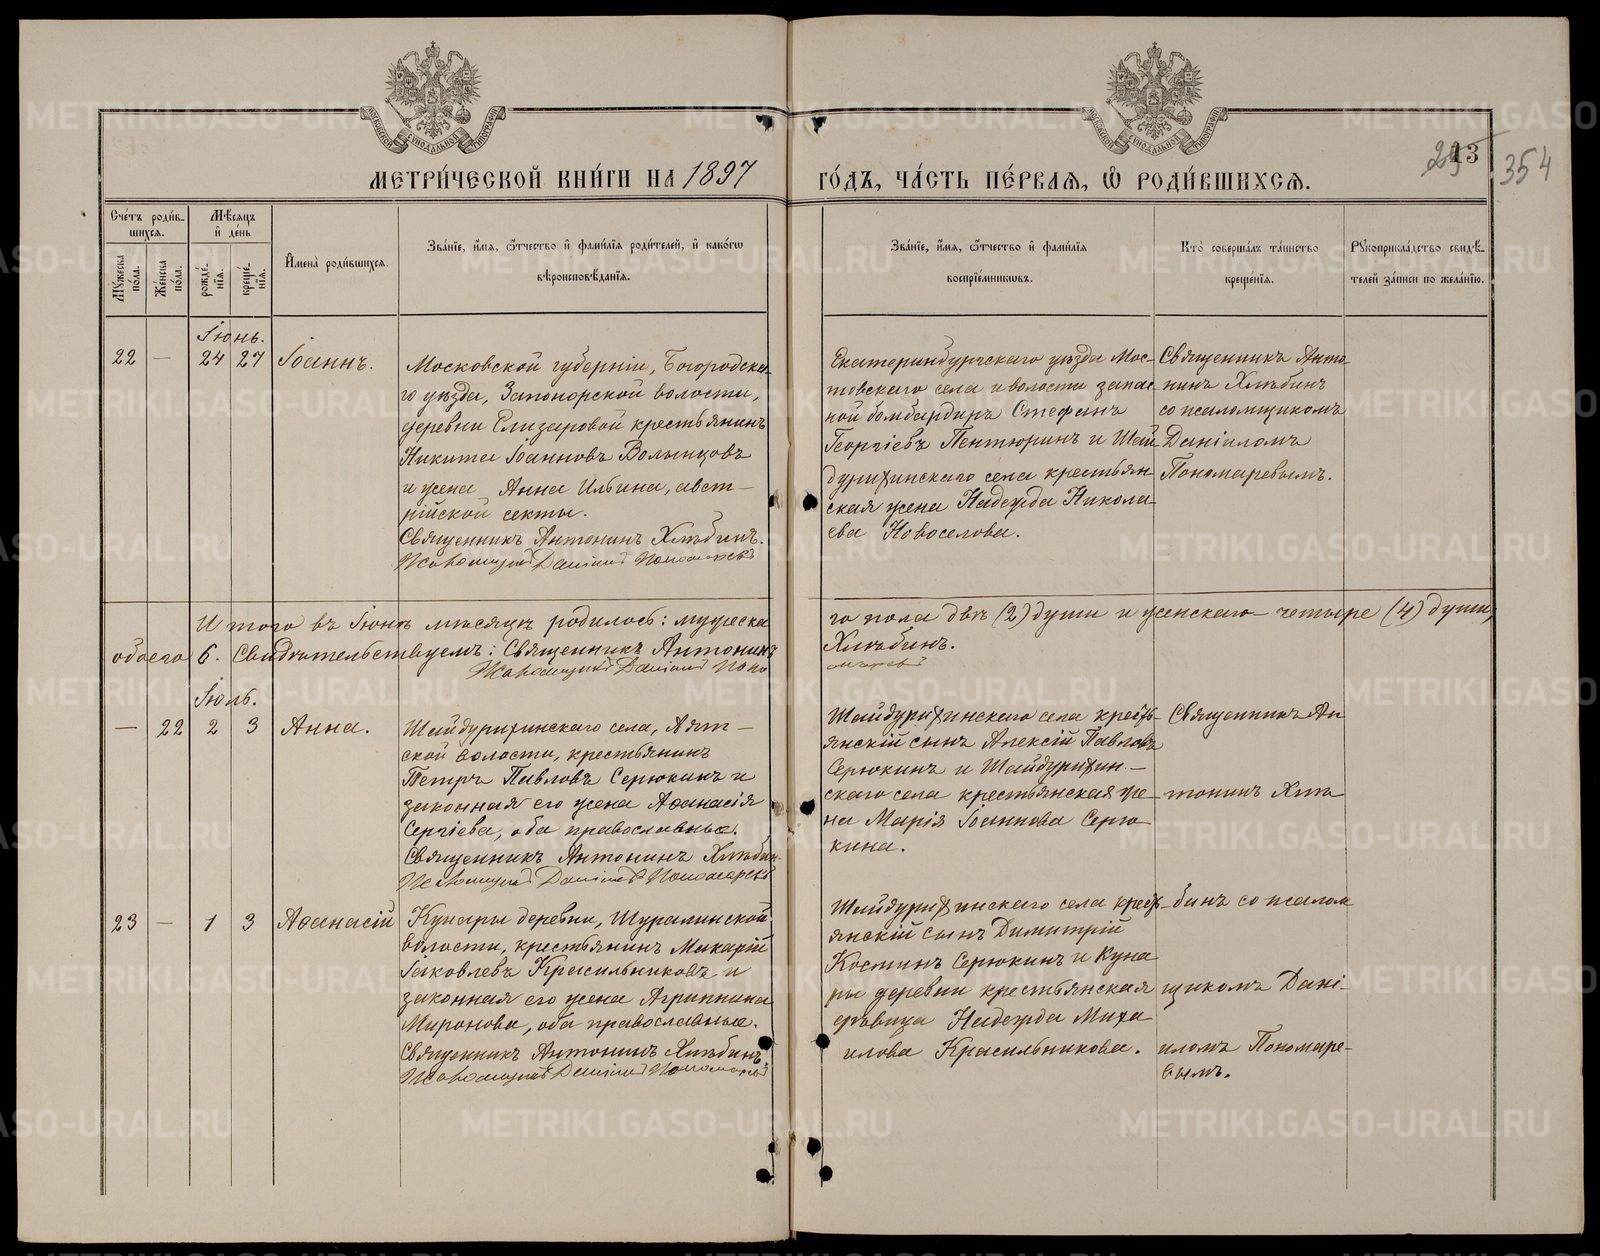 МЕТРИ́ЧЕСКОЙ КНИ́ГИ НА 1897
ГО́ДЪ, ЧА́СТЬ ПЕ́РВАЯ, Ѡ҆ РОДИ́ВШИХСЯ.
13
354
Сче́тъ роди́в-
шихся.
Мꙋ́жеска
по́ла.
Же́нска
по́ла.
Мѣ́сяцъ
и҆ де́нь
рожде́-
нїя.
креще́-
нїя.
И҆мена̀ роди́вшихся.
Зва́нїе, и҆́мя, ѻ҆́тчество и҆ фами́лїя роди́телей, и҆ како́гѡ
вѣроисповѣ́данїя.
Зва́нїе, и҆́мя, ѻ҆́тчество и҆ фами́лїя
воспрїе́мниковъ.
Кто̀ соверша́лъ та́инство
креще́нїя.
Рꙋкоприкла́дство свидѣ́-
телей за́писи по жела́нїю.
Іюнь.
22 — 24 27 Іоаннъ.
Московской губерніи, Богородска-
го уѣзда, Запонорской волости,
деревни Елизаровой крестьянинъ
Никита Іоанновъ Волынцовъ
и жена Анна Ильина, авст-
рійской секты.
Священникъ Антонинъ Хлѣбинъ.
Псаломщикъ Даніилъ Пономаревъ
Екатеринбургскаго уѣзда Мос-
товскаго села и волости запас-
ной бомбардиръ Стефанъ
Георгіевъ Пентюринъ и Шай-
дурихинскаго села крестьян-
ская жена Надежда Никола-
ева Новоселова.
Священникъ Анто-
нинъ Хлѣбинъ
со псаломщикомъ
Даніиломъ
Пономаревымъ.
Итого въ Іюнѣ мѣсяцѣ родилось: мужеска
го пола двѣ (2) души и женскаго четыре (4) души,
обоего 6. Свидѣтельствуемъ: Священникъ Антонинъ
Хлѣбинъ.
Псаломщикъ Даніилъ Поно
маревъ
Іюль.
— 22 2 3 Анна.
Шайдурихинскаго села, Аят-
ской волости, крестьянинъ
Петръ Павловъ Серюкинъ и
законная его жена Аѳанасія
Сергіева, оба православные.
Священникъ Антонинъ Хлѣбин.
Псаломщикъ Даніилъ Пономаревъ
Шайдурихинскаго села кресть-
янскій сынъ Алексій Павловъ
Серюкинъ и Шайдурихин-
скаго села крестьянская же-
на Марія Іоаннова Серю-
кина.
Священникъ Ан
тонинъ Хлѣ
23 — 1 3 Аѳанасій
Кунары деревни, Шуралинской
волости, крестьянинъ Макарій
Іаковлевъ Красильниковъ и
законная его жена Агриппина
Миронова, оба православные.
Священникъ Антонинъ Хлѣбинъ.
Псаломщикъ Даніилъ Пономаревъ
Шайдурихинскаго села кресть-
янскій сынъ Димитрій
Космнъ Серюкинъ и Куна
ры деревни крестьянская
дѣвица Надежда Миха
илова Красильникова.
бинъ со псалом
щикомъ Дані-
иломъ Пономаре-
вымъ.
METRIKI.GASO-URAL.RU